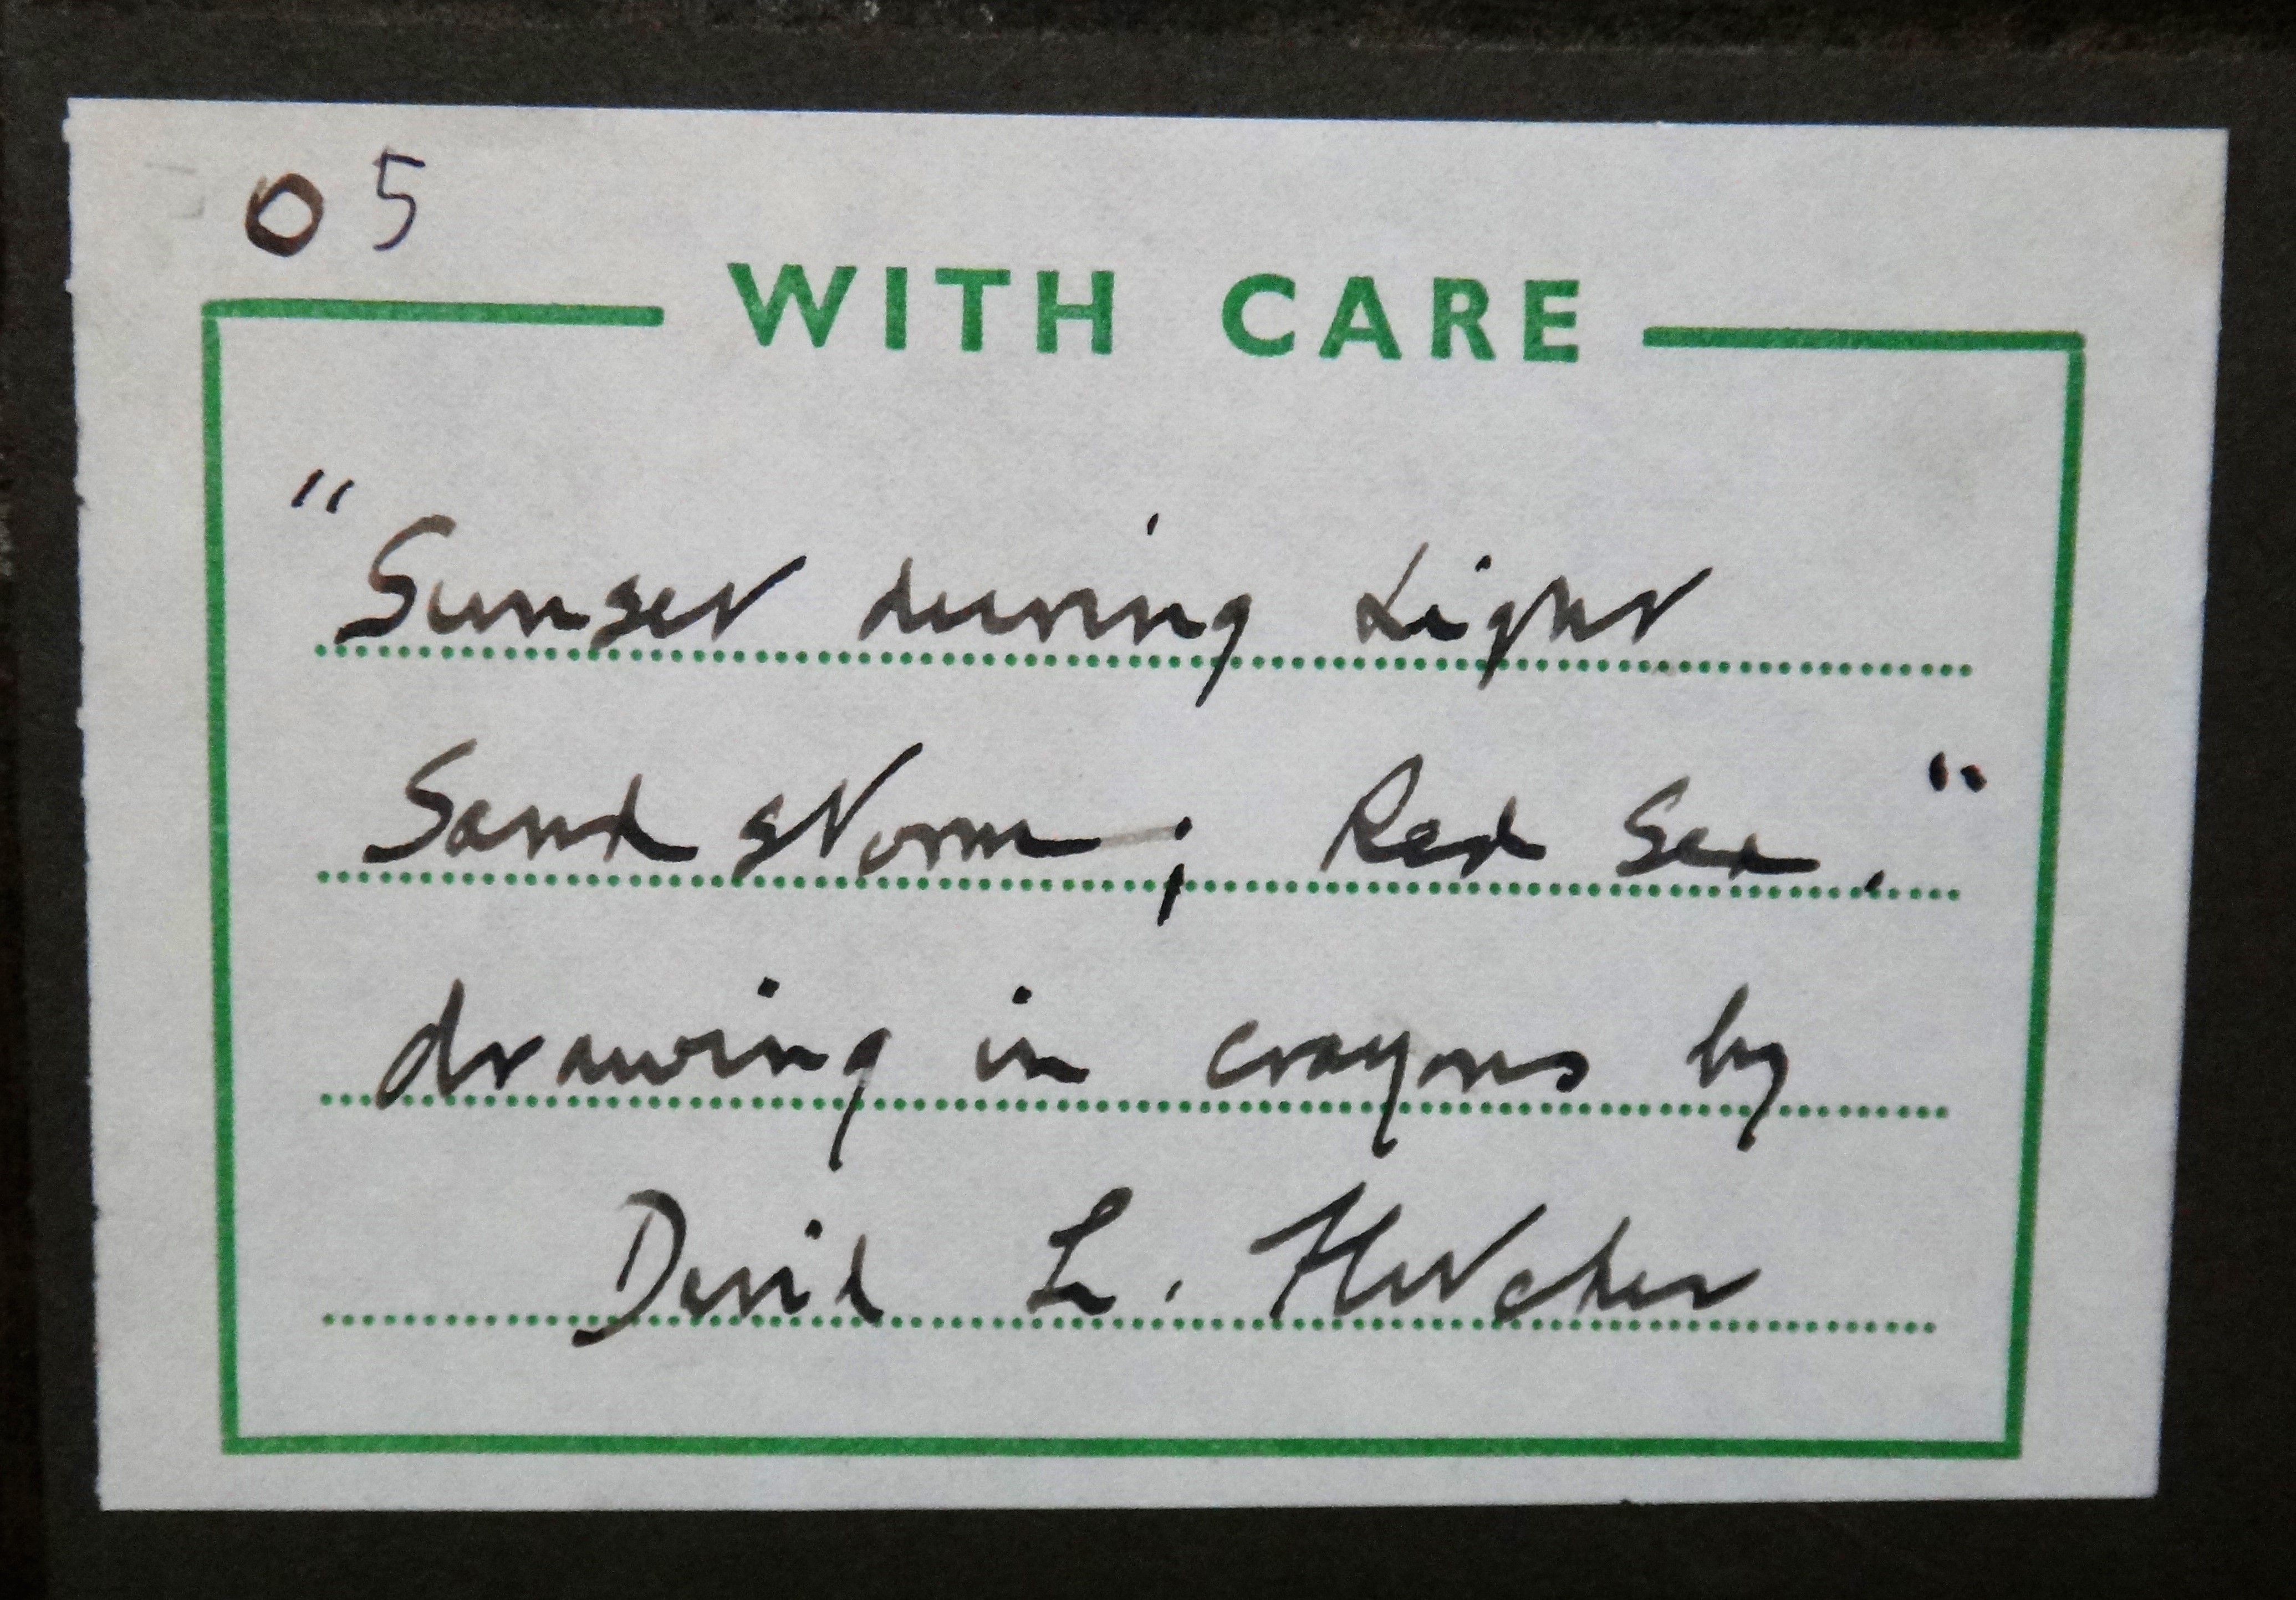 05
WITH CARE
"Sunset during Light
Sand storm; Red Sea."
drawing in crayons by
David L. Fletcher